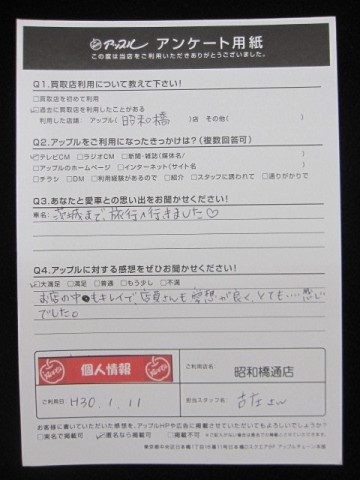 アップル アンケート用紙
この度は当店をご利用いただきありがとうございました。
Q1.買取店利用について教えて下さい!
□買取店を初めて利用
☑過去に買取店を利用したことがある
利用した店舗： アップル( 昭和橋 )店 その他( )
Q2.アップルをご利用になったきっかけは?(複数回答可)
☑テレビCM □ラジオCM □新聞・雑誌(媒体名/ )
□アップルのホームページ □インターネット(サイト名 )
□チラシ □DM □利用経験があるので □紹介 □スタッフに誘われて □通りがかりで
Q3.あなたと愛車との思い出をお聞かせください!
車名： 茨城まで、旅行へ行きました♡
Q4.アップルに対する感想をぜひお聞かせください!
☑大満足 □満足 □普通 □もう少し □不満
お店の中もキレイで、店員さんも愛想が良く、とても‥‥感じ
でした。
個人情報
ご利用店名：
昭和橋通店
ご利用日：
H30.1.11
担当スタッフ名：
お客様に書いていただいた感想を、アップルHPや広告に掲載させていただいてもよろしいでしょうか?
□実名で掲載可 ☑匿名なら掲載可 □掲載不可